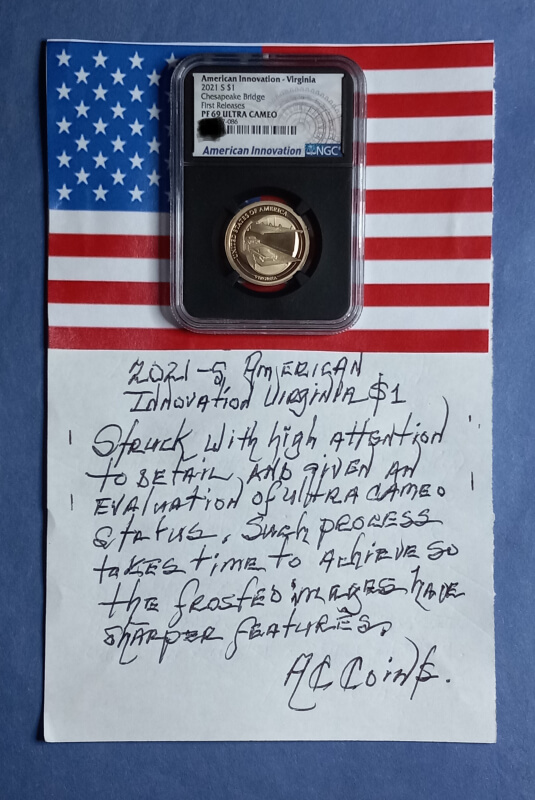 American Innovation - Virginia
2021 S $1
Chesapeake Bridge
First Releases
PF 69 ULTRA CAMEO
-086
American Innovation NGC
UNITED STATES OF AMERICA
VIRGINIA
2021-S AMERICAN
INNOVATION VIRGINIA $1
STRUCK WITH high ATTENTION
TO DETAIL, AND given AN
EVALUATION OF ULTRA CAMEO
STATUS. Such process
TAKES TIME TO Achieve so
the frosted images have
sharper features.
A C Coin$.